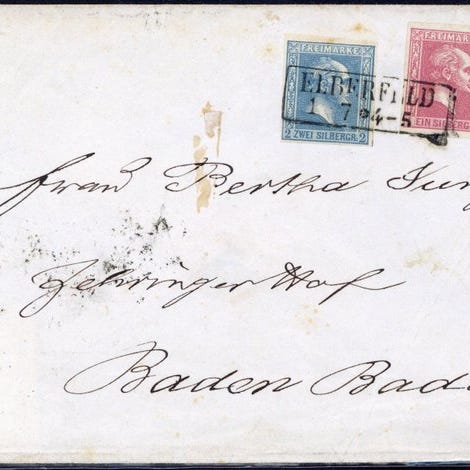 FREIMARKE
2 ZWEI SILBERGR. 2
FREIMARKE
EIN SILBERG
ELBERFELD
1 7 4-5
Frau Bertha Jung
Zehringer Hof
Baden Bad